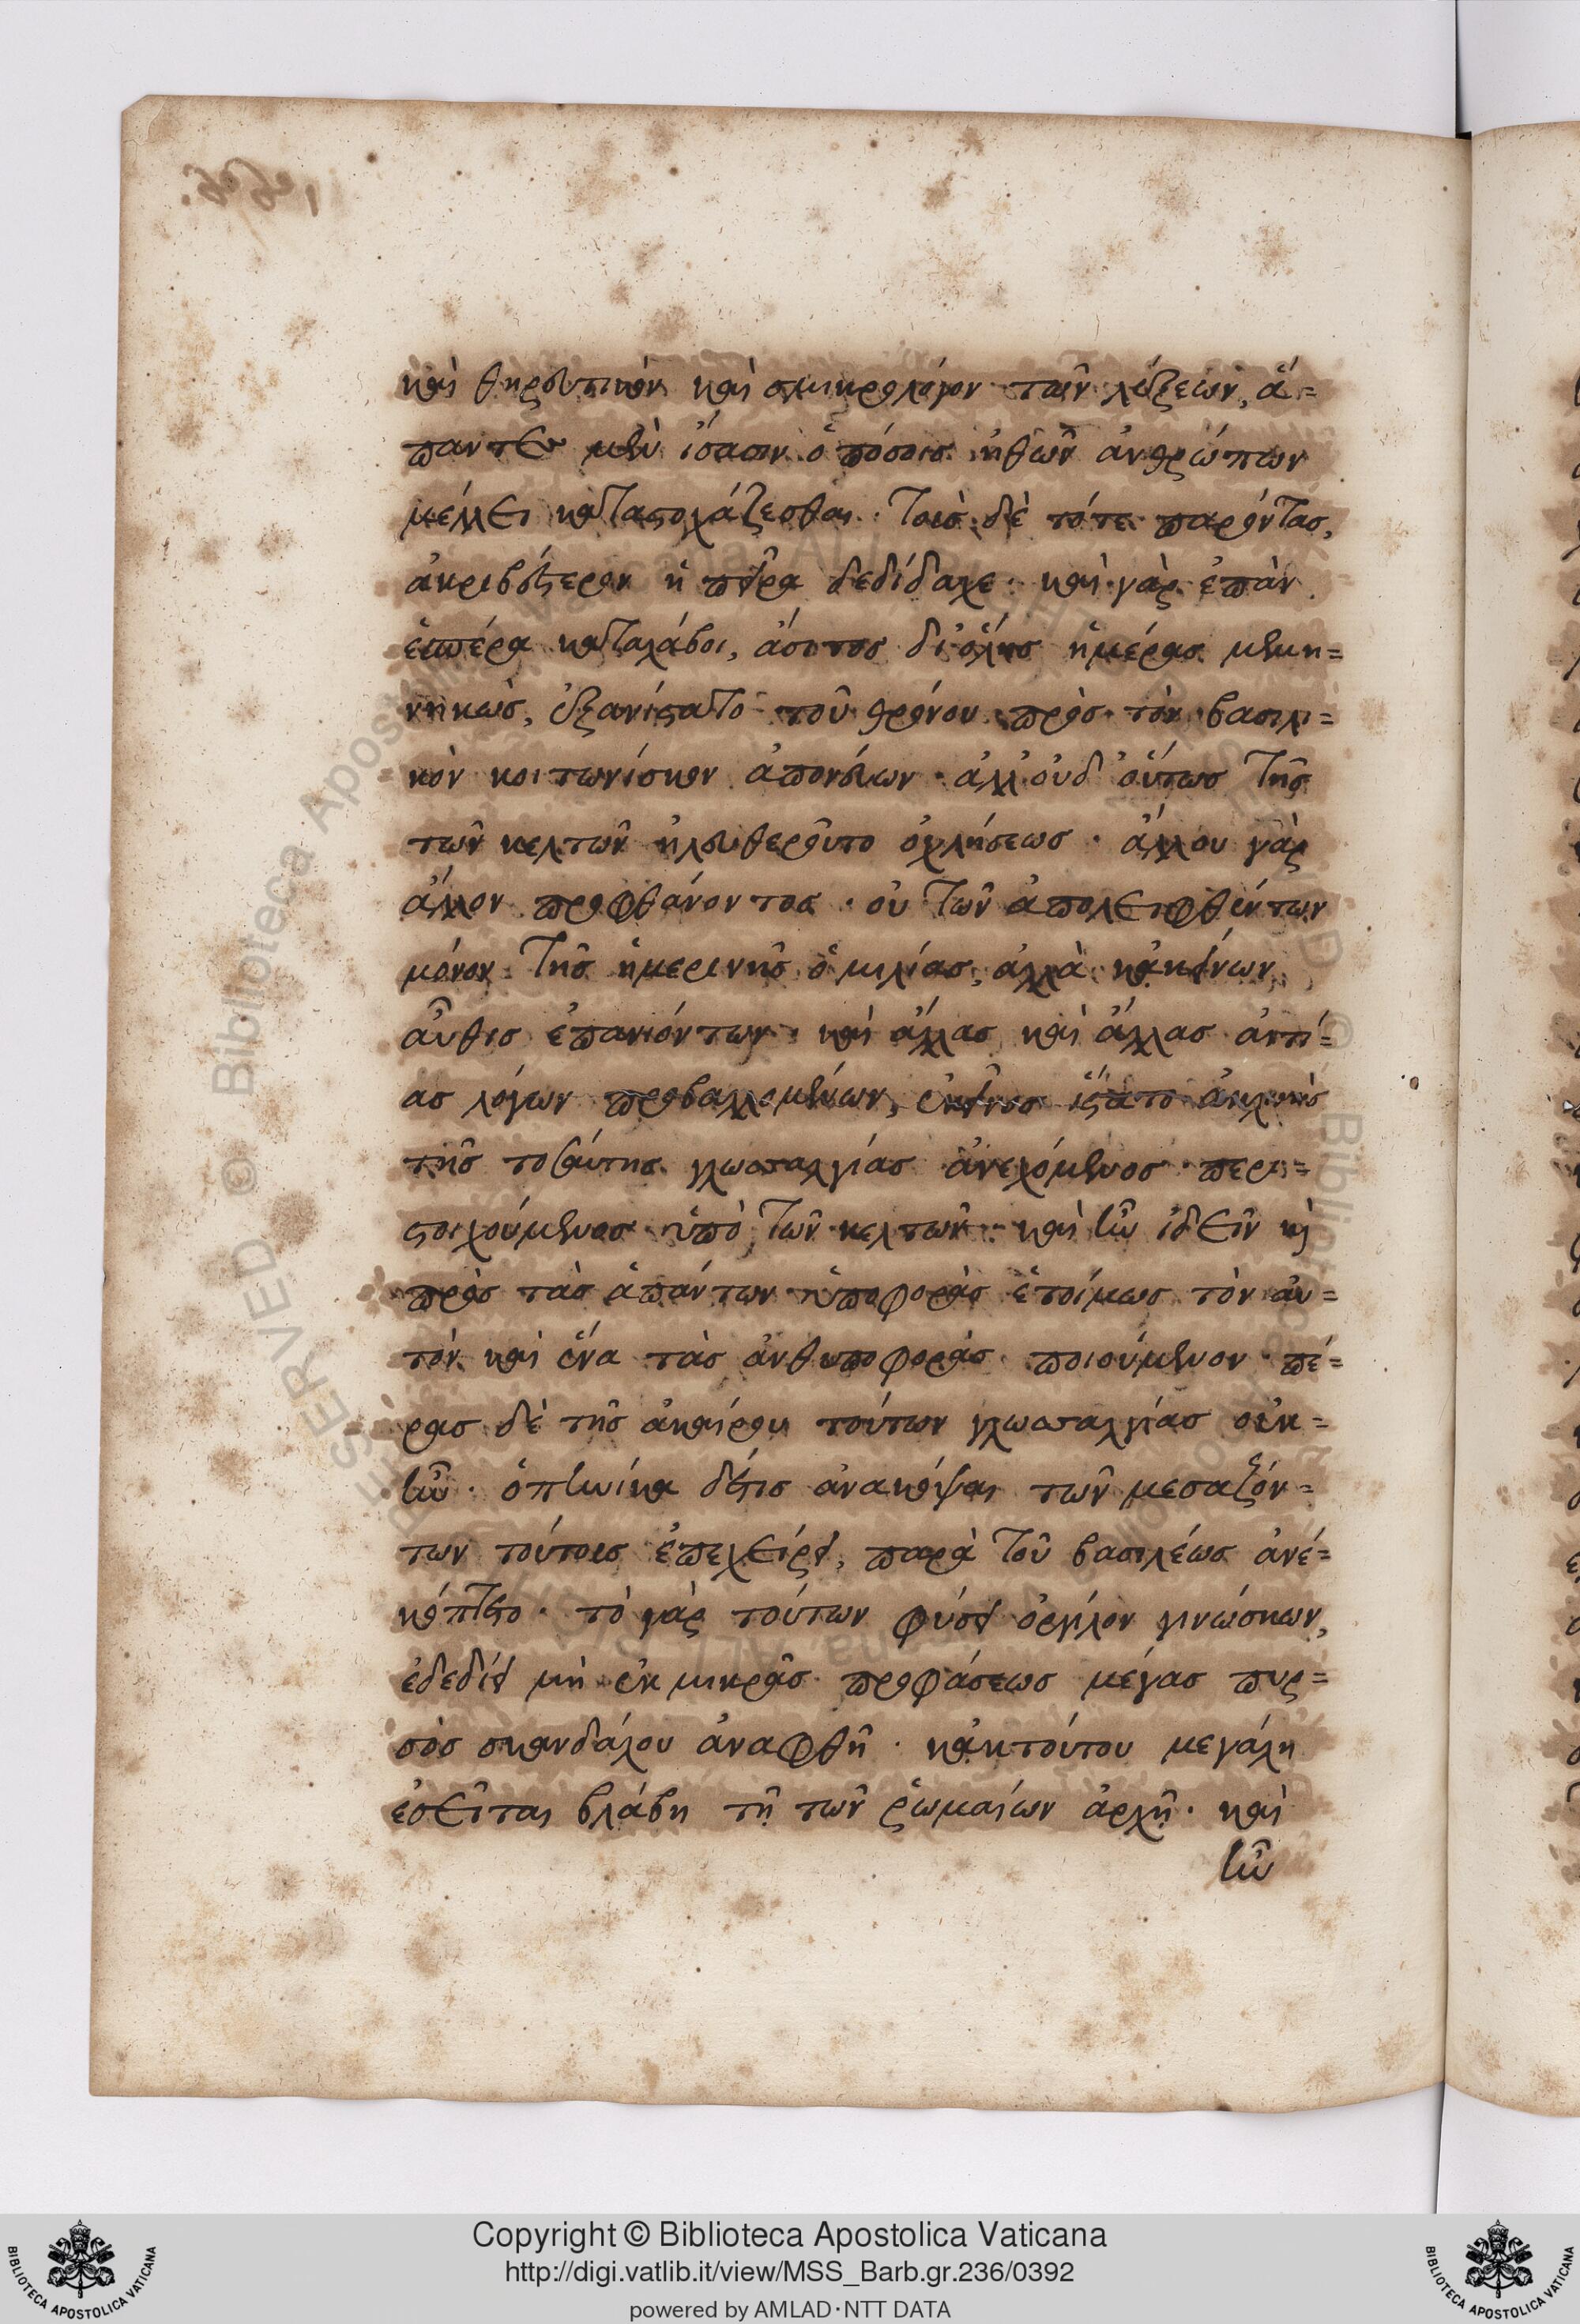 καὶ θηρευτικὸν καὶ σμικρολόγον τῶν λέξεων, ἅ=
παντες μὲν ἴσασιν ὁπόσοις ἠθῶν ἀνθρώπων
μέλλει καταστοχάζεσθαι. τοὺς δὲ τότε παρόντας,
ἀκριβέστερον ἡ πεῖρα δεδίδαχε. καὶ γὰρ ἐπὰν
ἑσπέρα καταλάβοι, ἄσιτος δι' ὅλης ἡμέρας μεμη=
νηκὼς, ἐξανίστατο τοῦ θρόνου πρὸς τὸν βασιλι=
κὸν κοιτωνίσκον ἀπονεύων. ἀλλ' οὐδ' οὕτως τῆς
τῶν κελτῶν ἠλευθεροῦτο ὀχλήσεως. ἄλλου γὰρ
ἄλλον προφθάνοντος. οὐ τῶν ἀπολειφθέντων
μόνον τῆς ἡμερινῆς ὁμιλίας, ἀλλὰ κἀκείνων
αὖθις ἐπανιόντων. καὶ ἄλλας καὶ ἄλλας αἰτί=
ας λόγων προβαλλομένων, ἐκεῖνος ἵστατο ἀκλινὴς
τῆς τοσαύτης γλωσσαλγίας ἀνεχόμενος. περι=
στοιχούμενος ὑπὸ τῶν κελτῶν. καὶ ἦν ἰδεῖν καὶ
πρὸς τὰς ἁπάντων ὑποφορὰς ἑτοίμως τὸν αὐ=
τὸν καὶ ἕνα τὰς ἀνθυποφορὰς ποιούμενον. πέ=
ρας δὲ τῆς ἀκαίρου τούτων γλωσσαλγίας οὐκ=
ἦν. ὁπηνίκα δέ τις ἀνακόψαι τῶν μεσαζόν=
των τούτοις ἐπεχείρει, παρὰ τοῦ βασιλέως ἀνε=
κόπτετο. τὸ γὰρ τούτων φύσει ὀργίλον γινώσκων,
ἐδεδίει μὴ ἐκ μικρᾶς προφάσεως μέγας πυρ=
σὸς σκανδάλου ἀναφθῆ. κἀκ τούτου μεγάλη
ἐσεῖται βλάβη τῇ τῶν ῥωμαίων ἀρχῇ. καὶ
ἦν
Copyright © Biblioteca Apostolica Vaticana
http://digi.vatlib.it/view/MSS_Barb.gr.236/0392
powered by AMLAD·NTT DATA